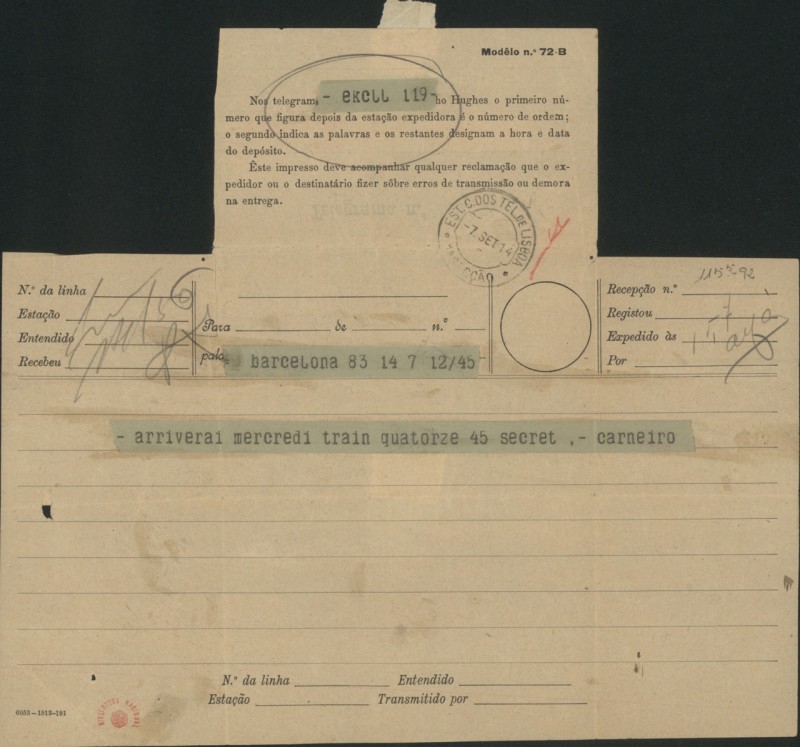 Modêlo n.º 72-B
Nos telegram - ekcll 119 - ho Hughes o primeiro nú-
mero que figura depois da estação expedidora é o número de ordem;
o segundo indica as palavras e os restantes designam a hora e data
do depósito.
Êste impresso deve acompanhar qualquer reclamação que o ex-
pedidor ou o destinatário fizer sôbre erros de transmissão ou demora
na entrega.
EST. C. DOS TEL. DE LISBOA
-7 SET 14
N.º da linha
Estação
Entendido
Recebeu
Para de n.º
pala
barcelona 83 14 7 12/45
Recepção n.º
Registou
Expedido às
Por
- arriverai mercredi train quatorze 45 secret .- carneiro
N.º da linha Entendido
Estação Transmitido por
BIBLIOTECA NACIONAL